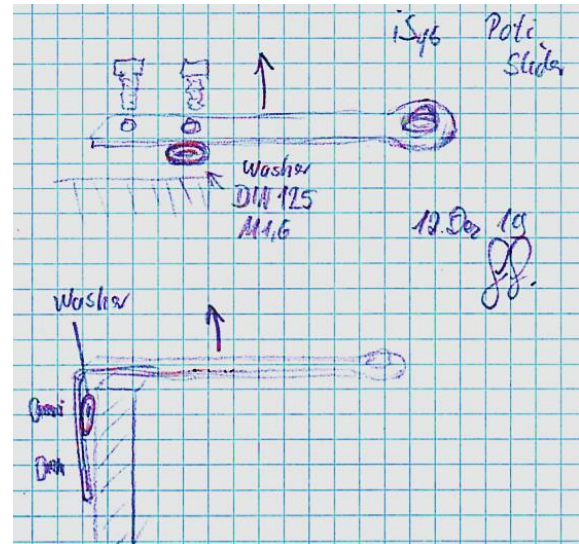 Poti
Slider
Washer
DIN 125
M1,6
12. Dez 19
Washer